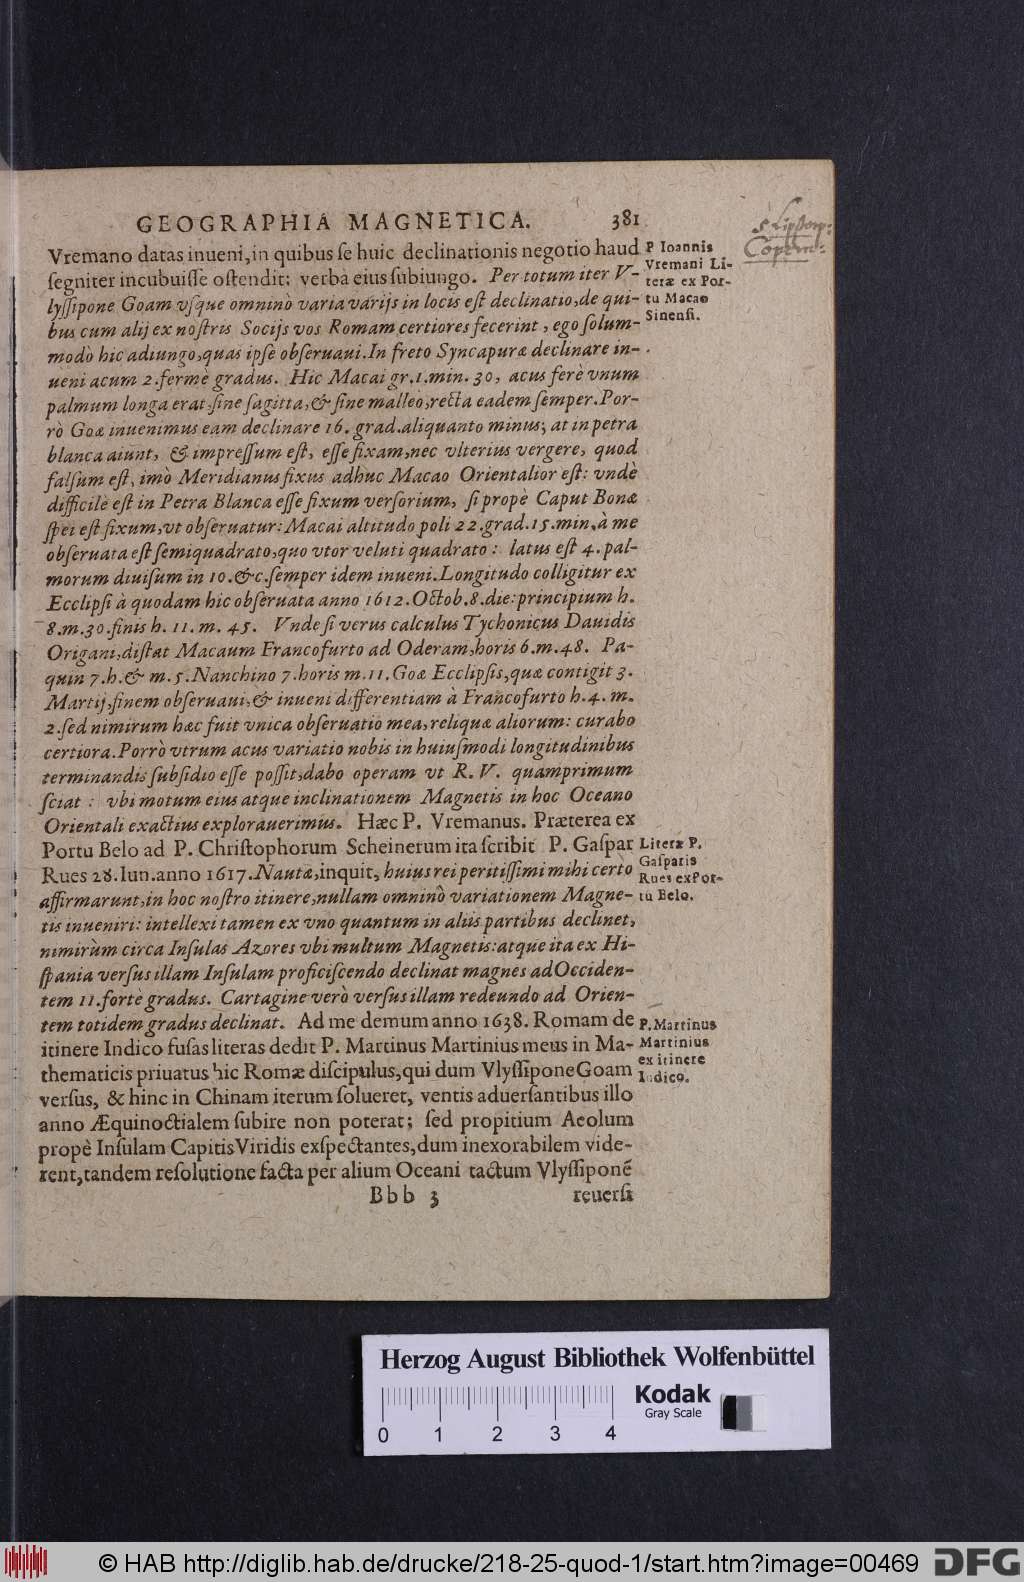 GEOGRAPHIA MAGNETICA. 381
Vremano datas inueni, in quibus ſe huic declinationis negotio haud
ſegniter incubuiſſe oſtendit: verba eius ſubiungo. Per totum iter V-
lyſſipone Goam vſque omninò varia varijs in locis eſt declinatio, de qui-
bus cum alij ex noſtris Socijs vos Romam certiores fecerint, ego ſolum-
modò hic adiungo, quas ipſe obſeruaui. In freto Syncapuræ declinare in-
ueni acum 2. fermè gradus. Hic Macai gr. 1. min. 30, acus ferè vnum
palmum longa erat, ſine ſagitta, & ſine malleo, recta eadem ſemper. Por-
rò Goæ inuenimus eam declinare 16. grad. aliquanto minus; at in petra
blanca aiunt, & impreſſum eſt, eſſe fixam, nec vlterius vergere, quod
falſum eſt, imò Meridianus fixus adhuc Macao Orientalior eſt: vndè
difficilè eſt in Petra Blanca eſſe fixum verſorium, ſi propè Caput Bonæ
ſpei eſt fixum, vt obſeruatur: Macai altitudo poli 22. grad. 15. min, à me
obſeruata eſt ſemiquadrato, quo vtor veluti quadrato: latus eſt 4. pal-
morum diuiſum in 10. &c. ſemper idem inueni. Longitudo colligitur ex
Ecclipſi à quodam hic obſeruata anno 1612. Octob. 8. die: principium h.
8. m. 30. finis h. 11. m. 45. Vnde ſi verus calculus Tychonicus Dauidis
Origani, diſtat Macaum Francofurto ad Oderam, horis 6. m. 48. Pa-
quin 7. h. & m. 5. Nanchino 7. horis m. 11. Goæ Ecclipſis, quæ contigit 3.
Martij, finem obſeruaui, & inueni differentiam à Francofurto h. 4. m.
2. ſed nimirum hæc fuit vnica obſeruatio mea, reliquæ aliorum: curabo
certiora. Porrò vtrum acus variatio nobis in huiuſmodi longitudinibus
terminandis ſubſidio eſſe poſſit, dabo operam vt R. V. quamprimum
ſciat: vbi motum eius atque inclinationem Magnetis in hoc Oceano
Orientali exactius explorauerimus. Hæc P. Vremanus. Præterea ex
Portu Belo ad P. Chriſtophorum Scheinerum ita ſcribit P. Gaſpar
Rues 28. Iun. anno 1617. Nautæ, inquit, huius rei peritiſſimi mihi certò
affirmarunt, in hoc noſtro itinere, nullam omninò variationem Magne-
tis inueniri: intellexi tamen ex vno quantum in aliis partibus declinet,
nimirùm circa Inſulas Azores vbi multum Magnetis: atque ita ex Hi-
ſpania verſus illam Inſulam proficiſcendo declinat magnes ad Occiden-
tem 11. fortè gradus. Cartagine verò verſus illam redeundo ad Orien-
tem totidem gradus declinat. Ad me demum anno 1638. Romam de
itinere Indico fuſas literas dedit P. Martinus Martinius meus in Ma-
thematicis priuatus hic Romæ diſcipulus, qui dum Vlyſſipone Goam
verſus, & hinc in Chinam iterum ſolueret, ventis aduerſantibus illo
anno Æquinoctialem ſubire non poterat; ſed propitium Aeolum
propè Inſulam Capitis Viridis exſpectantes, dum inexorabilem vide-
rent, tandem reſolutione facta per alium Oceani tactum Vlyſſiponē
Bbb 3 reuerſi
P. Ioannis
Vremani Li-
teræ ex Por-
tu Macao
Sinenſi.
Literæ P.
Gaſparis
Rues ex Por-
tu Belo.
P. Martinus
Martinius
ex itinere
Indico.
Herzog August Bibliothek Wolfenbüttel
Kodak
Gray Scale
0 1 2 3 4
© HAB http://diglib.hab.de/drucke/218-25-quod-1/start.htm?image=00469
DFG